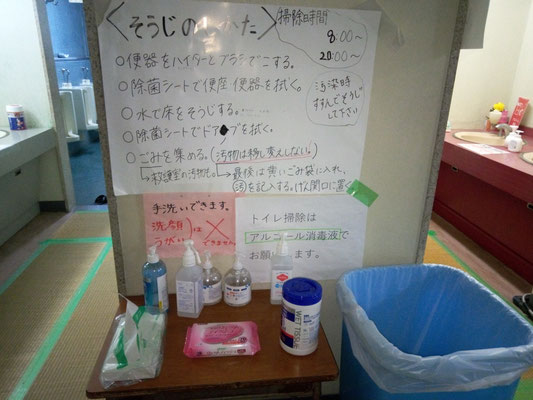 〈そうじのしかた〉
掃除時間
8:00〜
20:00〜
○便器をハイターとブラシでこする。
○除菌シートで便座 便器を拭く。
○水で床をそうじする。
○除菌シートでドアノブを拭く。
○ごみを集める。(汚物は移し変えしない。)
最後は黄いごみ袋に入れ、
を記入する。
汚染時
すすんでそうじ
して下さい
手洗いできます。
洗顔
うがい
は
×
できません。
トイレ掃除は
アルコール消毒液で
お願います。
WET TISSUE